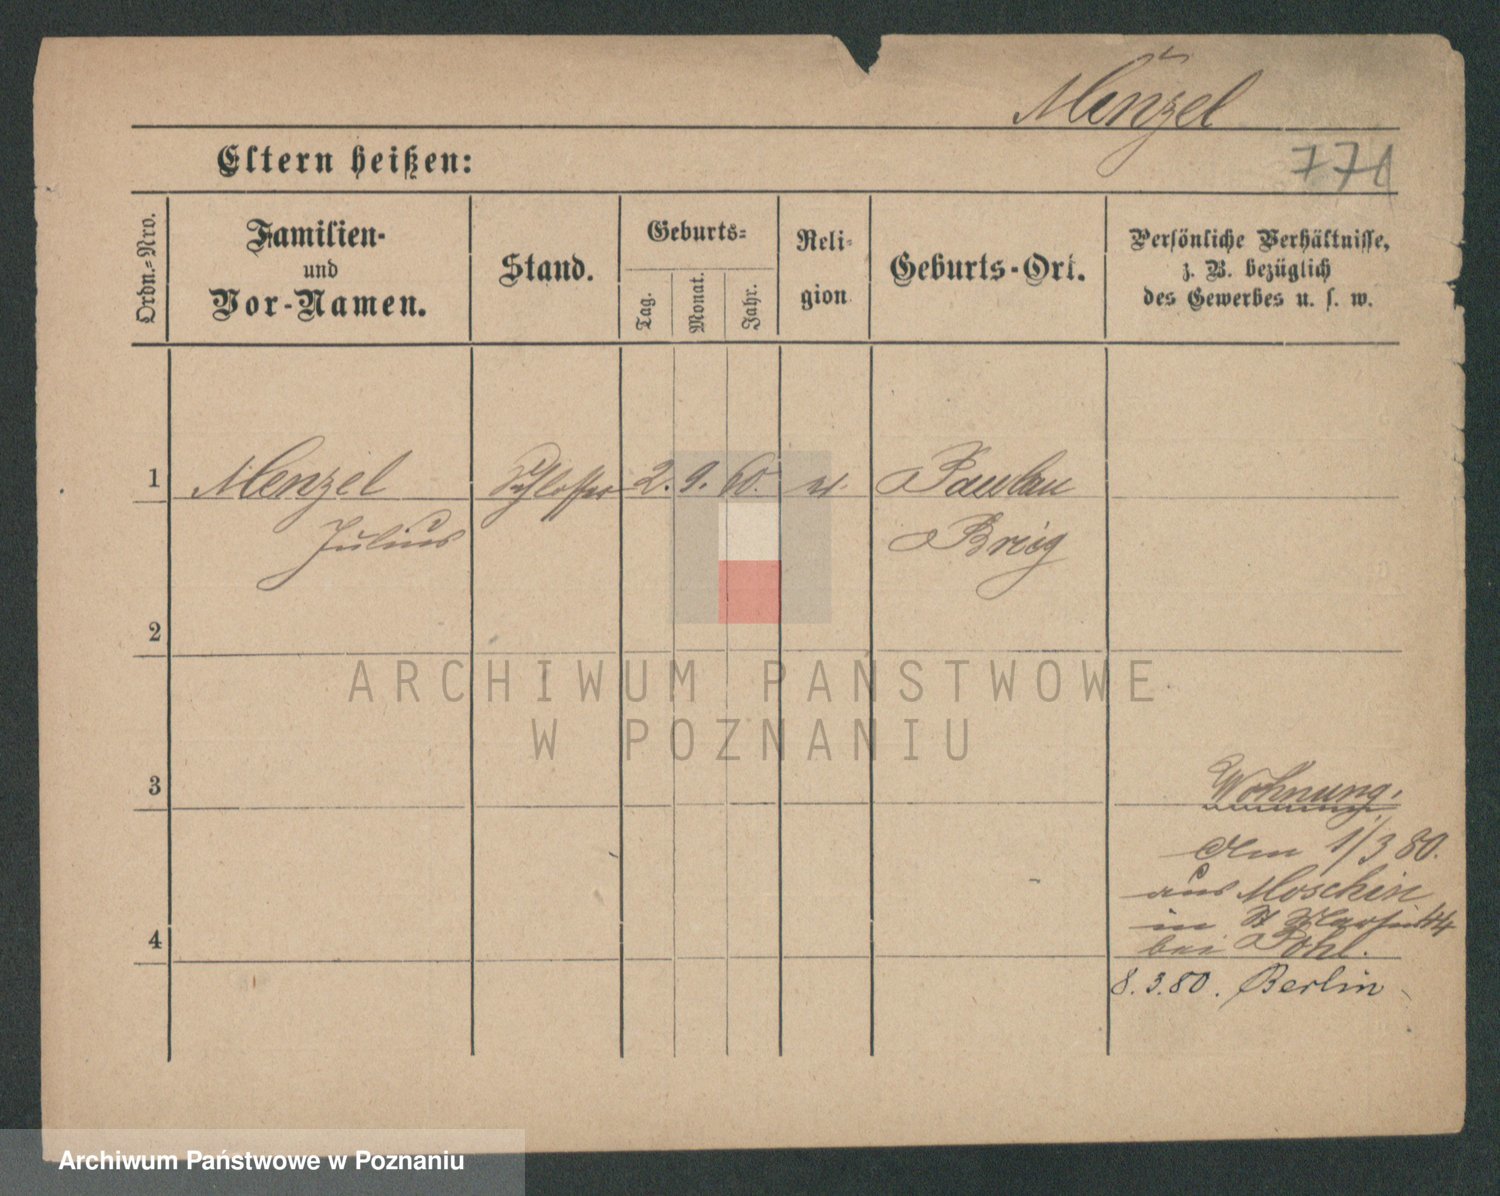 Menzel
771
Eltern heißen:
Ordn.-Nro.
Familien-
und
Vor-Namen.
Stand.
Geburts-
Tag.
Monat.
Jahr.
Reli-
gion
Geburts-Ort.
Persönliche Verhältnisse,
z. B. bezüglich
des Gewerbes u. s. w.
1
Menzel
Schlosser
2. 9. 60.
Paulau
Julius
Brieg
2
ARCHIWUM PAŃSTWOWE
W POZNANIU
3
Wohnung.
Am 1/3 80.
aus Moschin
in St Martin 44
4
bei Pohl.
8. 3. 80. Berlin
Archiwum Państwowe w Poznaniu